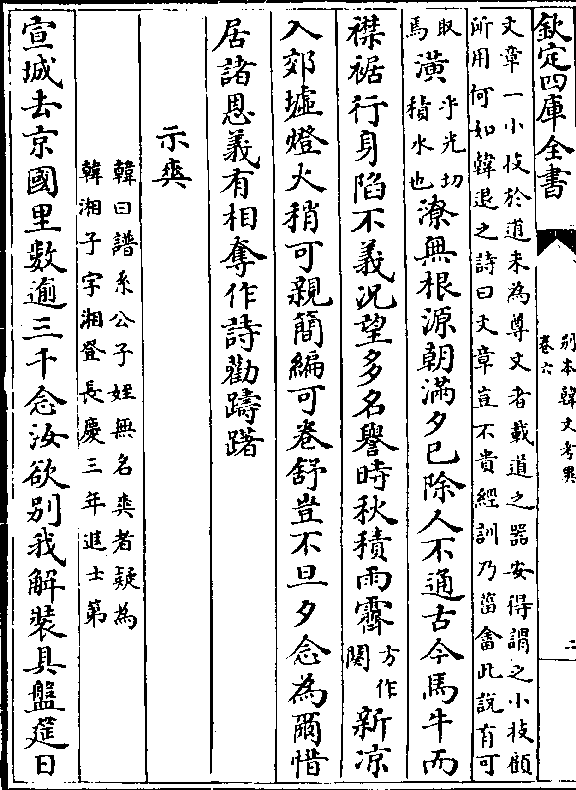 欽定四庫全書
別本韓文考異
卷六
二
文章一小技於道未為尊文者載道之器安得謂之小技顧
所用何如韓退之詩曰文章豈不貴經訓乃菑畬此說有可
取
馬
潢
乎光切
積水也
潦無根源朝滿夕已除人不通古今馬牛而
襟裾行身陷不義況望多名譽時秋積雨霽
方作
闋
新涼
入郊墟燈火稍可親簡編可卷舒豈不旦夕念為爾惜
居諸恩義有相奪作詩勸躊躇
示爽
韓曰譜系公子姪無名爽者疑為
韓湘子字湘登長慶三年進士第
宣城去京國里數逾三千念汝欲別我解裝具盤筵日